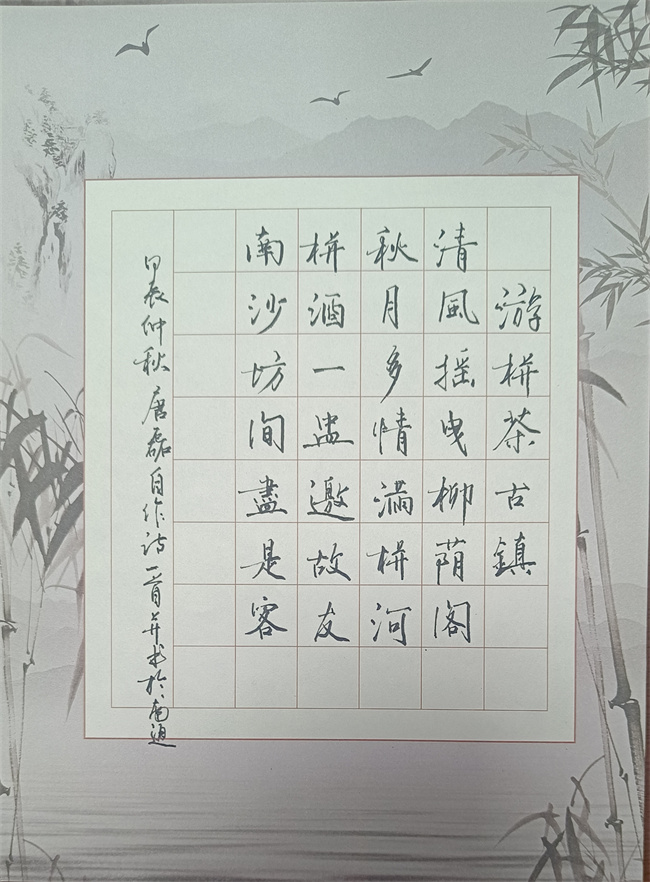 游栟茶古鎮
清風摇曳柳荫阁
秋月多情满栟河
栟酒一盅邀故友
南沙坊间盡是客
甲辰仲秋唐磊自作诗一首并书於南通